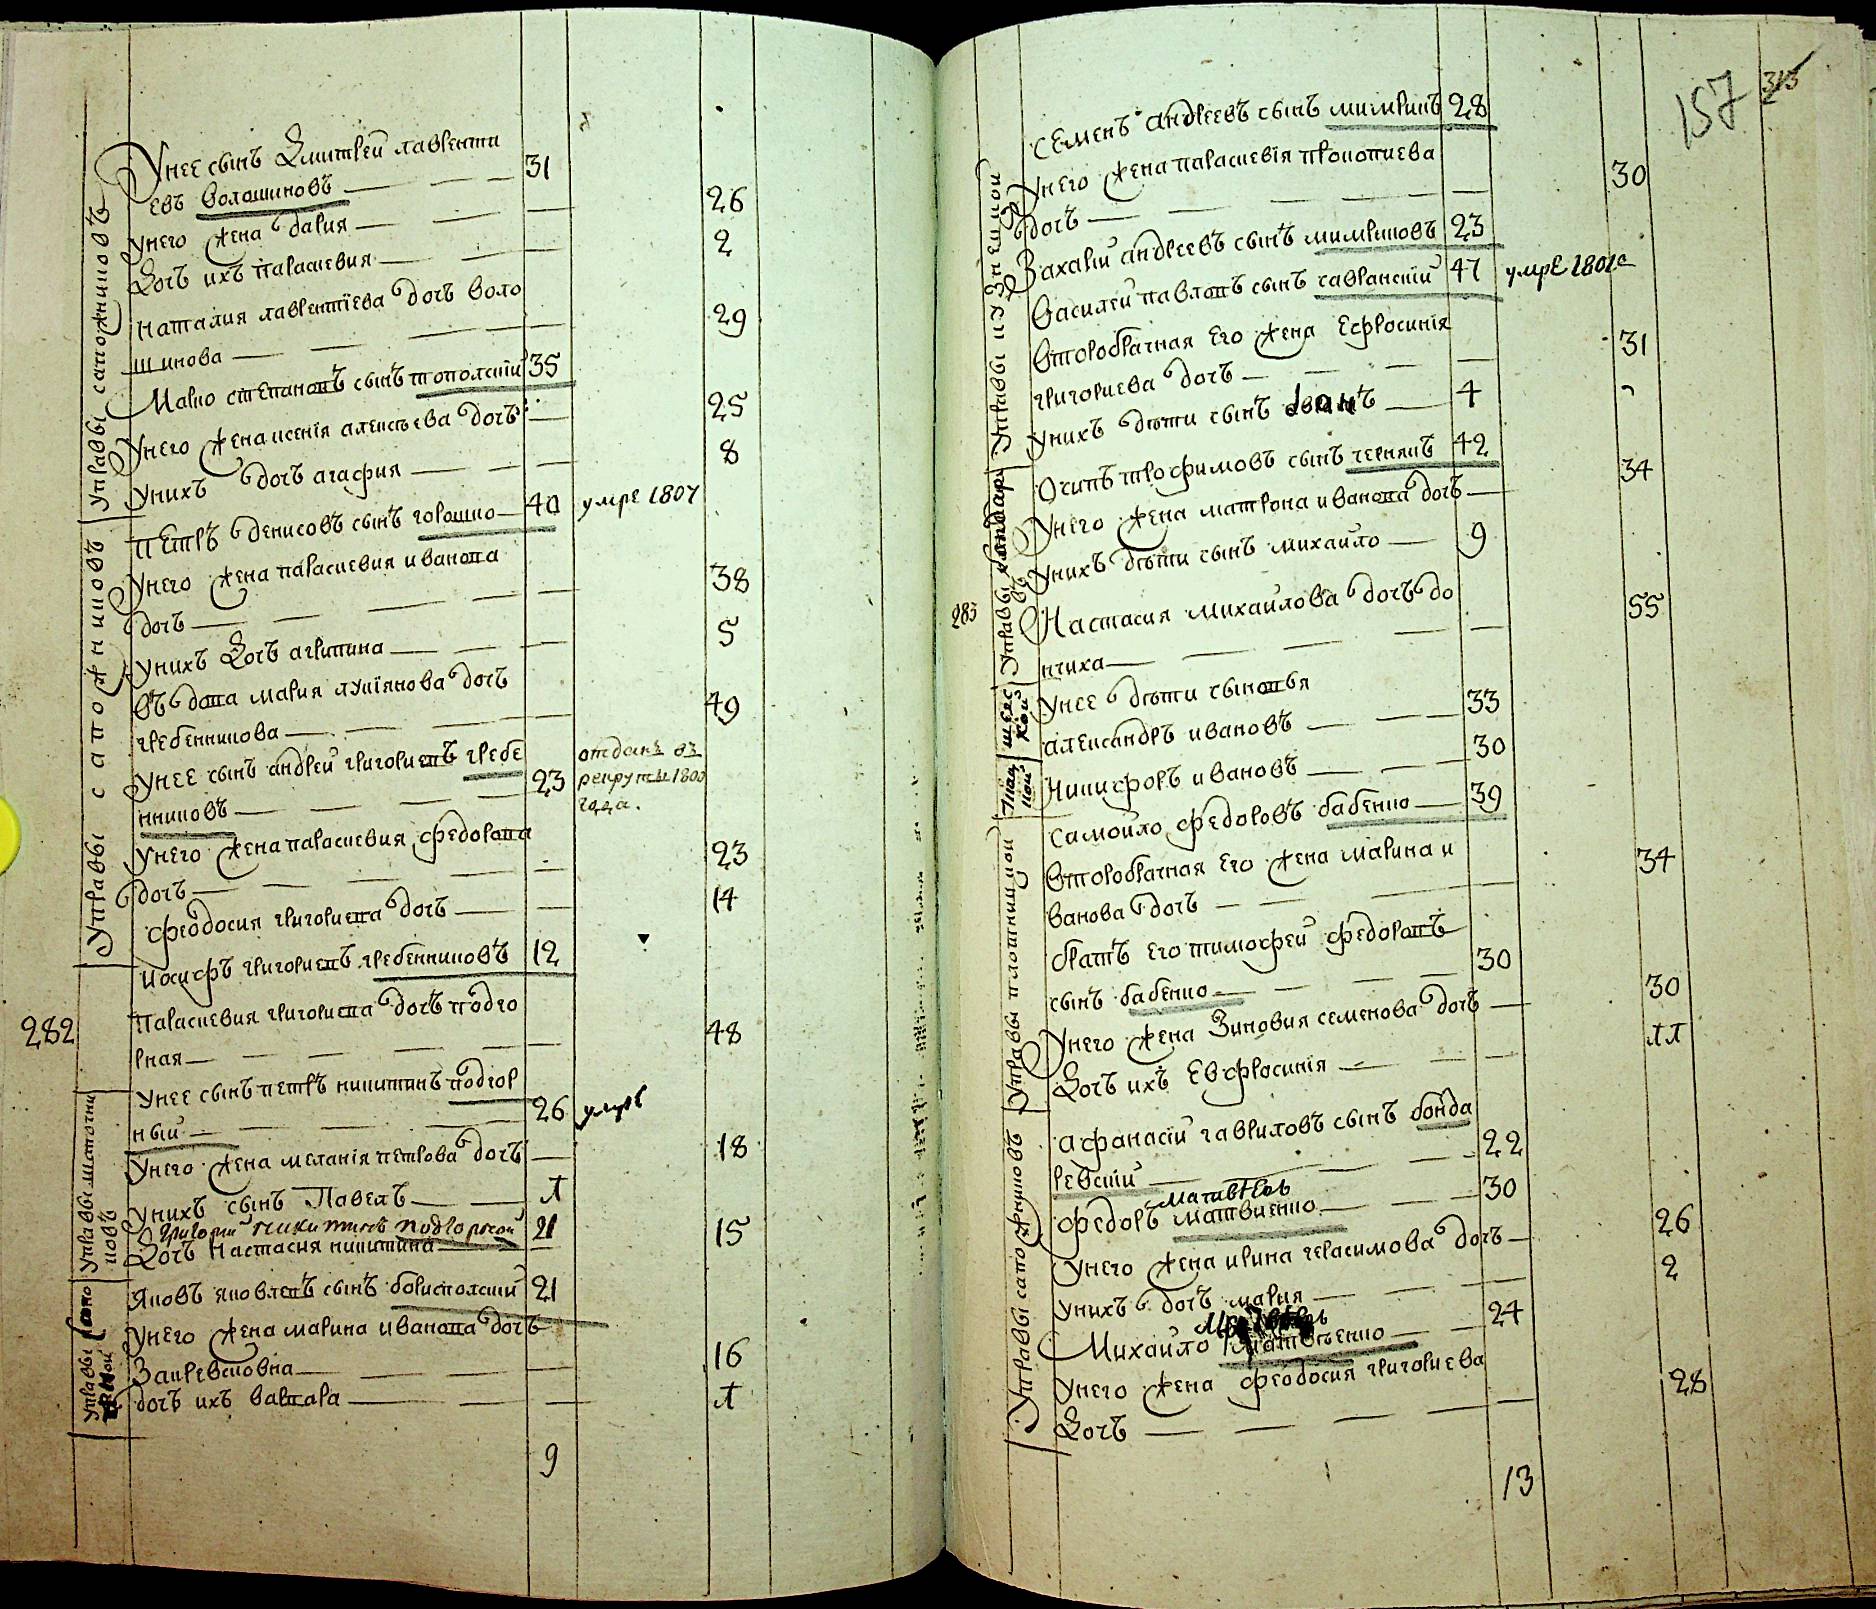 Унее сынъ Дмитрей лавренти
евъ волошиновъ 31
унего жена дария 26
Дочь ихъ параскевия 2
Наталия лаврентїева дочь воло
шинова 29
Марко степановъ сынъ топольскїй 35
Унего жена ксенїя алексѣева дочь 25
Унихъ дочь агафия 8
Петръ денисовъ сынъ горошко 40 умре 1807
Унего жена параскевия иванова
дочь 38
Унихъ Дочь агрипина 5
въдова мария лукіянова дочь
гребенникова 49
Унее сынъ андрей григориевъ гребе
нниковъ 23 отданъ въ рекруты 1803 года.
Унего жена параскевия федорова
дочь 23
феодосия григориева дочь 14
иосифъ григориевъ гребенниковъ 12
282
Параскевия григориева дочь подго
рная 48
Унее сынъ петръ никитинъ подгор
ный 26 умрѣ
Унего жена меланія петрова дочь 18
Унихъ сынъ Павелъ
Григорий Никитинъ подгорной 21
Дочь Настасия никитина 15
Яковъ яковлевъ сынъ борисполскїй 21
Унего жена марина иванова дочь
Закревсковна 16
дочь ихъ варвара
9
Управы сапожниковъ
Управы сапожниковъ
Управы
новъ
Управы
157 313
семенъ андреевъ сынъ 28
Унего жена параскевїя прокопиева
дочь 30
Захарій андреевъ сынъ 23
Василей павловъ сынъ савранскїй 47 умре 1801
Второбрачная его жена Ефросинїя
григориева дочь 31
Унихъ дѣти сынъ 4
Осипъ трофимовъ сынъ чернякъ 42
Унего жена матрона иванова дочь 34
Унихъ дѣти сынъ михайло 9
283
Настасия михайлова дочь до
нчиха 55
Унее дѣти сыновья
александръ ивановъ 33
Никифоръ ивановъ 30
Самойло федоровъ бабенко 39
Второбрачная его жена марина и
ванова дочь 34
братъ его тимофей федоровъ
сынъ бабенко 30
Унего жена Зиновия семенова дочь 30
Дочь ихъ Евфросинїя
афанасїй гавриловъ сынъ бонда
ревскїй 22
федоръ матвиенко 30
Унего жена ирина герасимова дочь 26
Унихъ дочь мария 2
Михайло матвѣенко 24
Унего жена феодосия григориева
Дочь 28
13
Управы кузнецкой
Управы
Управы плотницкой
Управы сапожниковъ